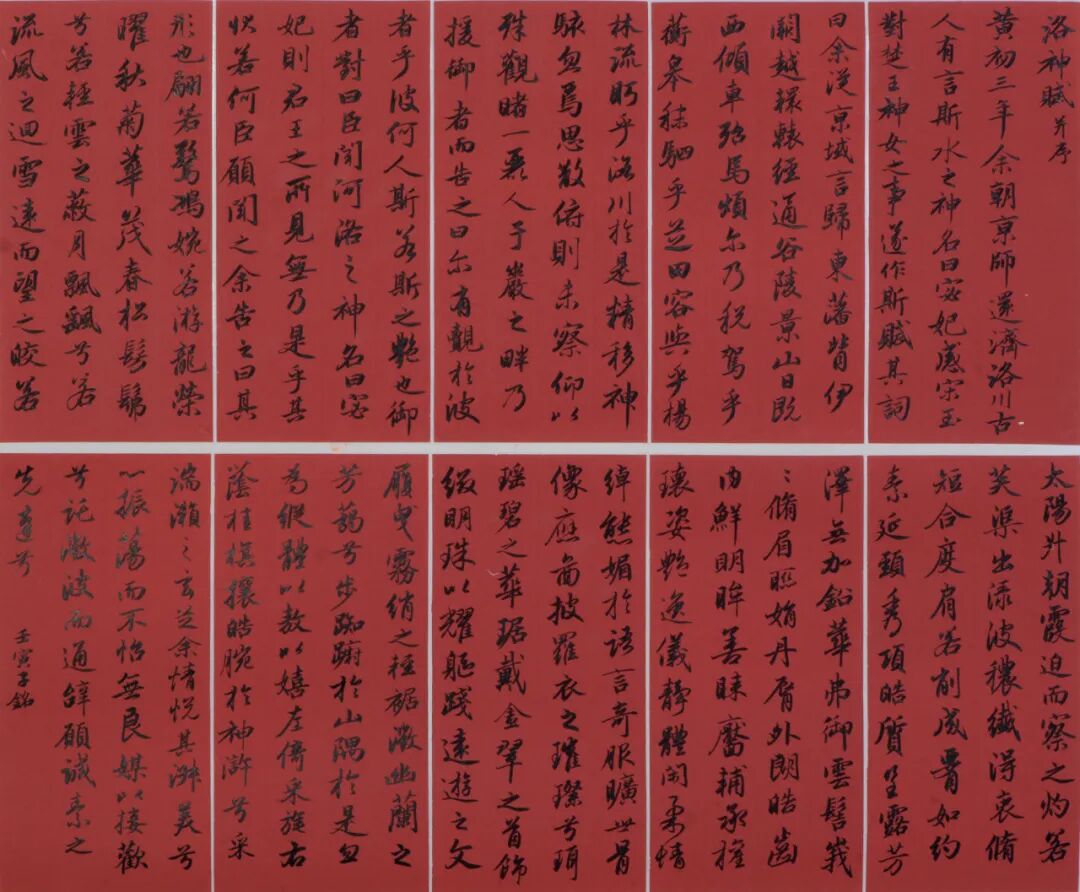 洛神賦并序
黃初三年余朝京師還濟洛川古
人有言斯水之神名曰宓妃感宋玉
對楚王神女之事遂作斯賦其詞
曰余從京域言歸東藩背伊
闕越轘轅經通谷陵景山日既
西傾車殆馬煩尔乃稅駕乎
蘅皋秣駟乎芝田容與乎楊
林流眄乎洛川於是精移神
駭忽焉思散俯則未察仰以
殊觀睹一麗人于巖之畔乃
援御者而告之曰尔有覿於彼
者乎彼何人斯若斯之艷也御
者對曰臣聞河洛之神名曰宓
妃則君王之所見無乃是乎其
狀若何臣願聞之余告之曰其
形也翩若驚鴻婉若游龍榮
曜秋菊華茂春松髣髴
兮若輕雲之蔽月飄飖兮若
流風之迴雪遠而望之皎若
太陽升朝霞迫而察之灼若
芙渠出淥波穠纖得衷脩
短合度肩若削成腰如約
素延頸秀項皓質呈露芳
澤無加鉛華弗御雲髻峩
〻脩眉聯娟丹脣外朗皓齒
內鮮明眸善睞靨輔承權
瓌姿艷逸儀靜體閑柔情
綽態媚於語言奇服曠世骨
像應圖披羅衣之璀璨兮珥
瑤碧之華琚戴金翠之首飾
綴明珠以耀軀踐遠遊之文
履曳霧綃之輕裾微幽蘭之
芳藹兮步踟躕於山隅於是忽
焉縱體以敖以嬉左倚采旄右
蔭桂旗攘皓腕於神滸兮采
湍瀨之玄芝余情悅其淑美兮
心振蕩而不怡無良媒以接歡
兮託微波而通辭願誠素之
先達兮
壬寅子銘